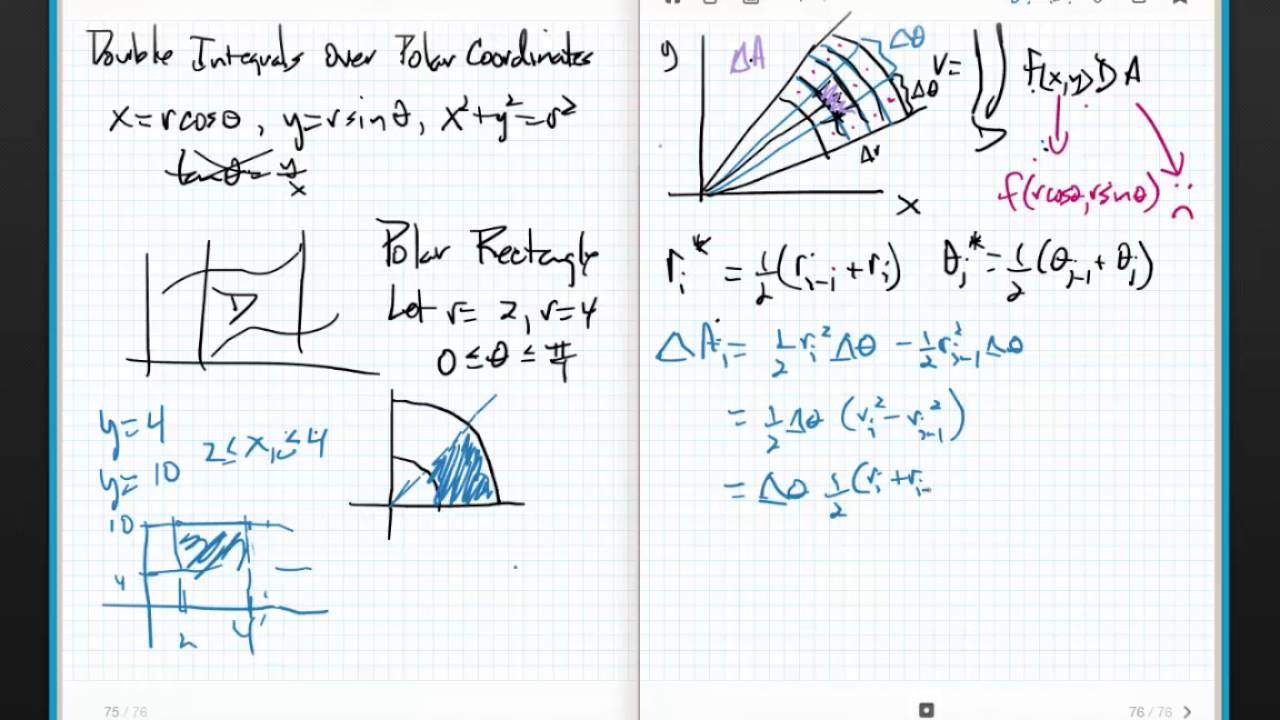 Double Integrals Over Polar Coordinates
x = r cos θ , y = r sin θ , x² + y² = r²
tan θ = y/x
Polar Rectangle
Let r = 2, r = 4
0 ≤ θ ≤ π/4
D
y = 4
2 ≤ x ≤ 4
y = 10
10
4
2
4
75 / 76
y
ΔA
Δθ
Δθ
Δr
x
V = ∬ f(x,y) dA
D
f(r cos θ, r sin θ)
rᵢ* = 1/2 (rᵢ₋₁ + rᵢ)
θⱼ* = 1/2 (θⱼ₋₁ + θⱼ)
ΔAᵢ = 1/2 rᵢ² Δθ − 1/2 rᵢ₋₁² Δθ
= 1/2 Δθ (rᵢ² − rᵢ₋₁²)
= Δθ 1/2 (rᵢ + rᵢ₋
76 / 76